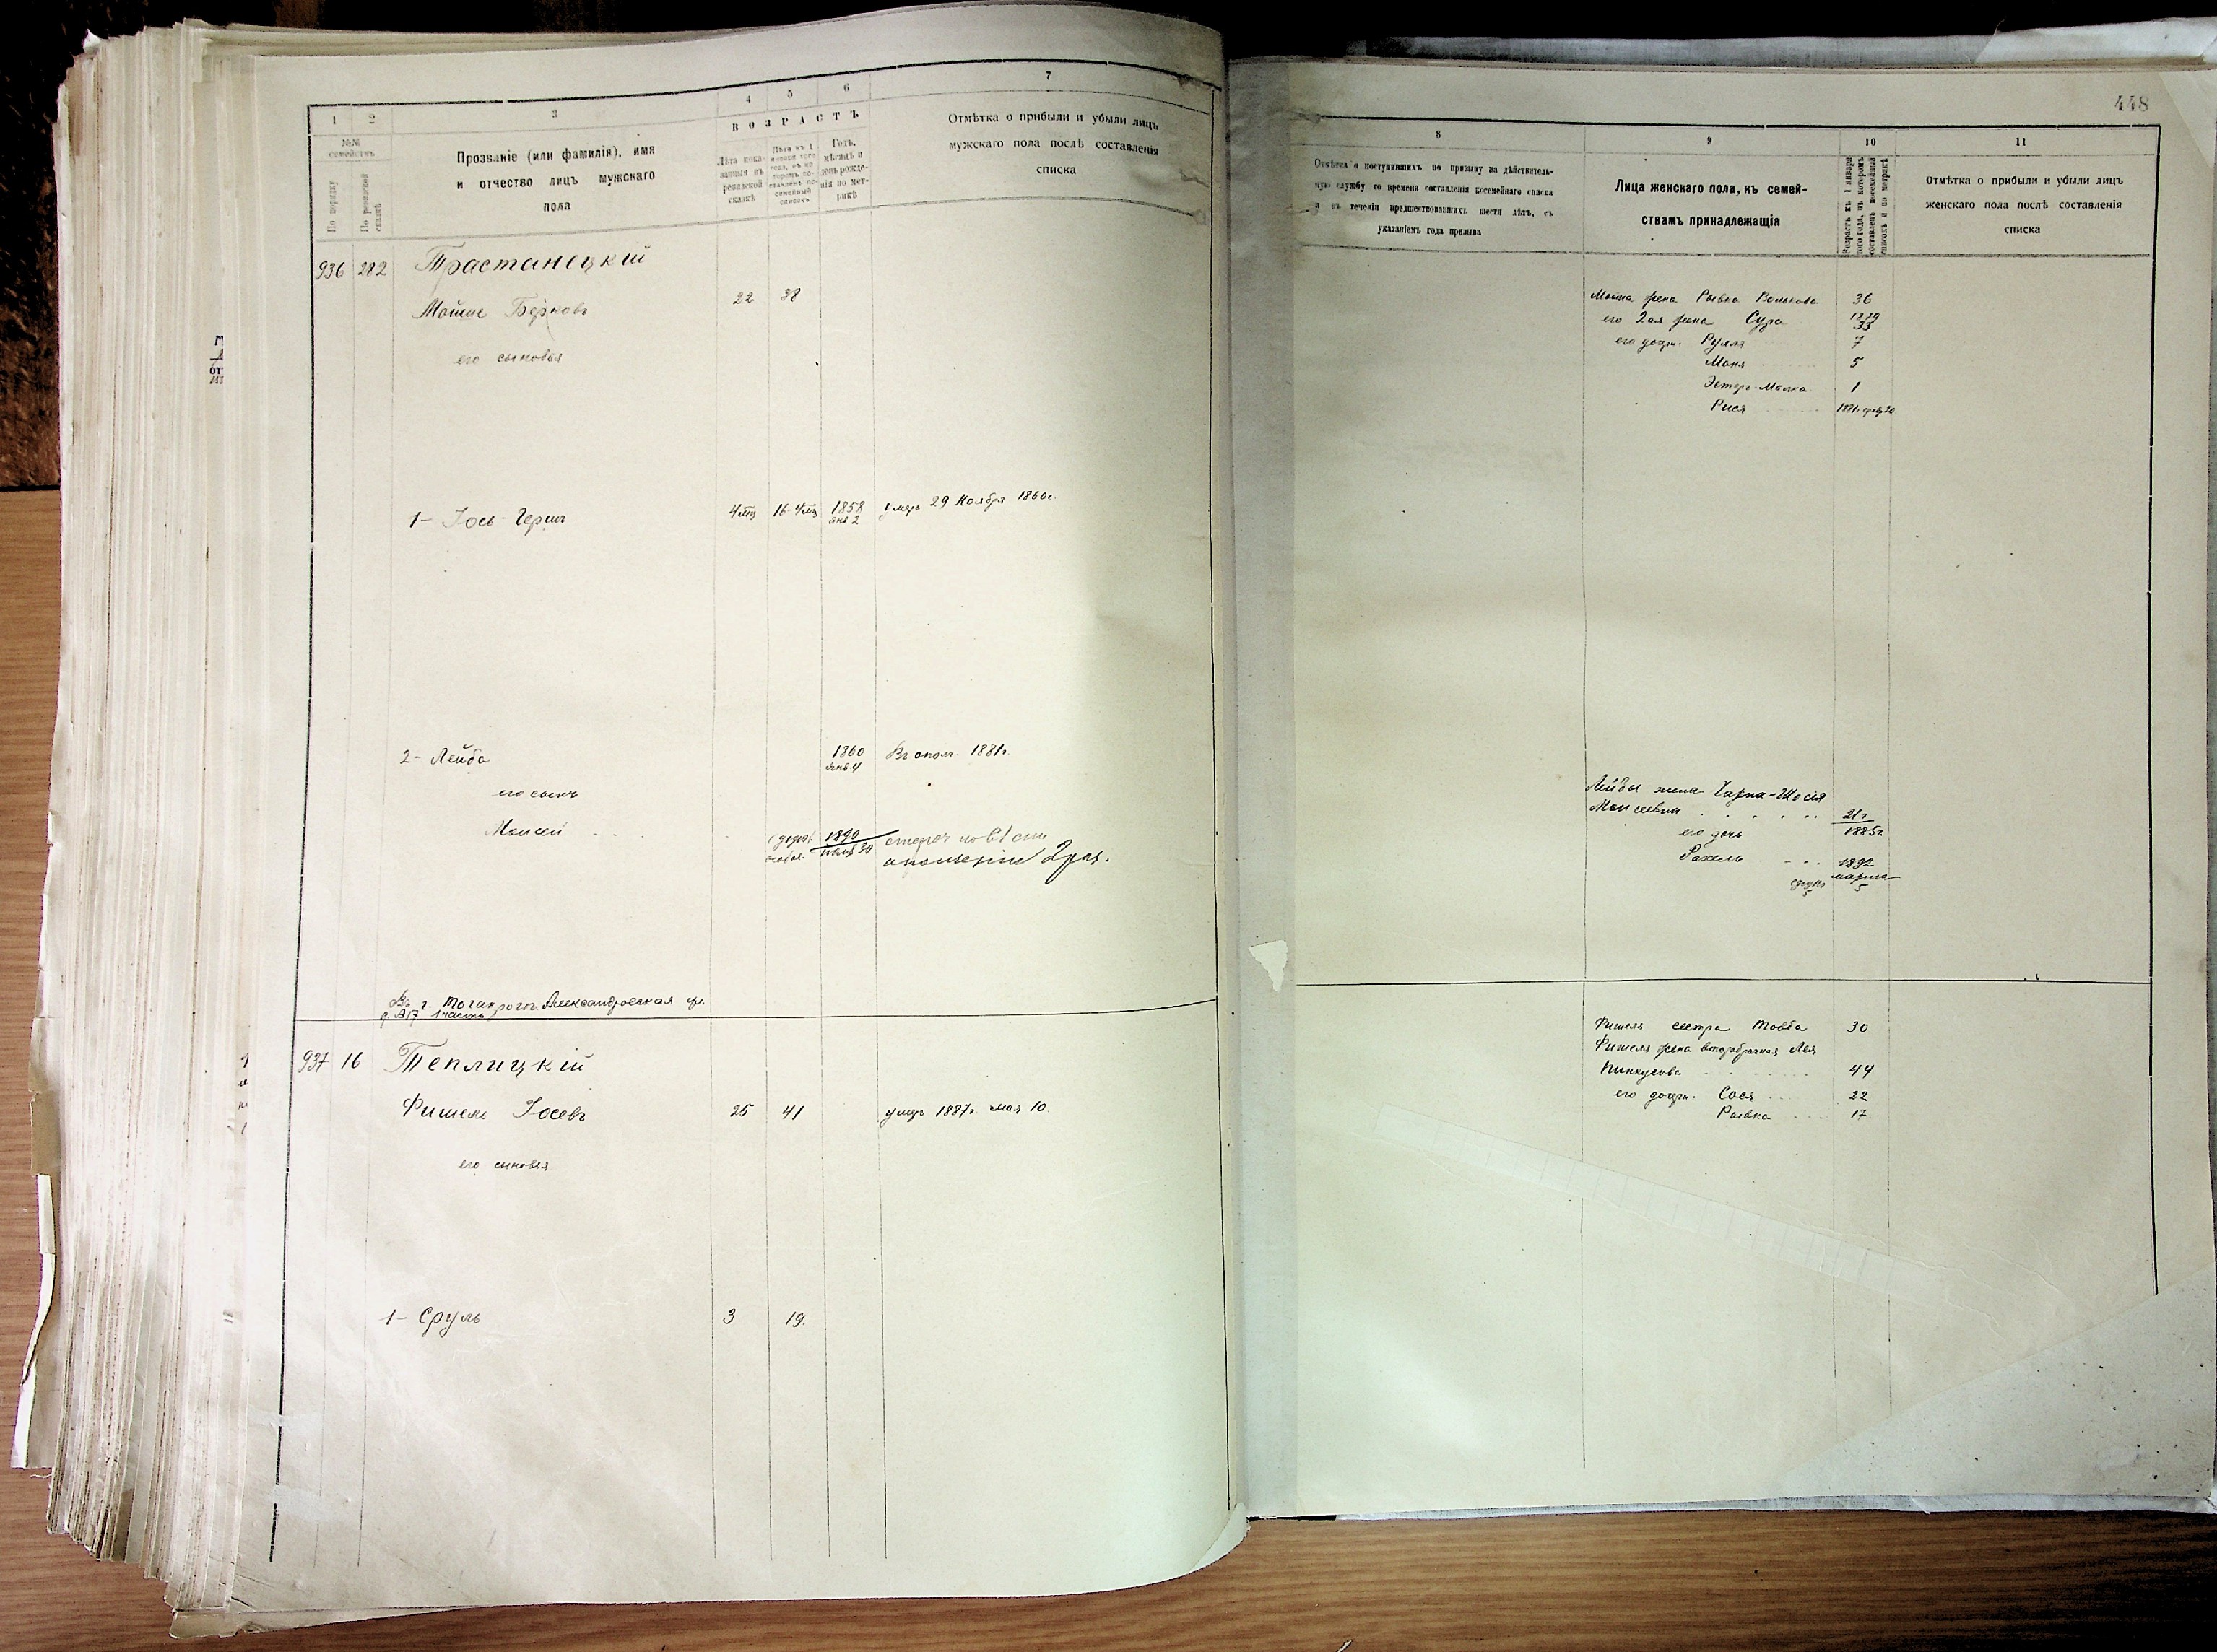 1
2
3
4
5
6
7
№№ семействъ
По порядку
По ревизской сказкѣ
Прозваніе (или фамилія), имя
и отчество лицъ мужскаго
пола
ВОЗРАСТЪ
Лѣта пока-
занныя въ
ревизской
сказкѣ
Лѣта къ 1
января того
года, въ ко-
торомъ со-
ставленъ по-
семейный
списокъ
Годъ,
мѣсяцъ и
день рожде-
нія по мет-
рикѣ
Отмѣтка о прибыли и убыли лицъ
мужскаго пола послѣ составленія
списка
936 282 Трастанецкій
Мошке Берковъ 22 38
его сыновья
1- Іось-Гершъ 4 мц 16. 4 мц 1858 янв 2 умеръ 29 Ноября 1860г.
2- Лейба 1860 янв 4 1881г.
его сынъ
Моисей 1890
2 раз.
Въ г. Таганрогъ Александровская ул.
937 16 Теплицкій
Фишель Іосевъ 25 41 умеръ 1887г. мая 10.
его сыновья
1- Сруль 3 19.
448
8
9
10
11
Отмѣтка о поступившихъ по призыву на дѣйствитель-
ную службу со времени составленія посемейнаго списка
и въ теченіи предшествовавшихъ шести лѣтъ, съ
указаніемъ года призыва
Лица женскаго пола, къ семей-
ствамъ принадлежащія
Возрастъ къ 1 января
того года, въ которомъ
составленъ посемейный
списокъ и по метрикѣ
Отмѣтка о прибыли и убыли лицъ
женскаго пола послѣ составленія
списка
жена Рывка Волькова 36
его 2ая жена Сура 1879 33
его дочри. Рулля 7
Маня 5
Эстеръ-Малка 1
Рися 1881г. 20
Лейбы жена Чарна-Шося
Моисеевна 21 г 1885г.
его дочь
Рахель 1892 марта 5
Фишеля сестра Товба 30
Фишеля жена второбрачная Лея
Пинкусова 44
его дочри. Сося 22
Рывка 17